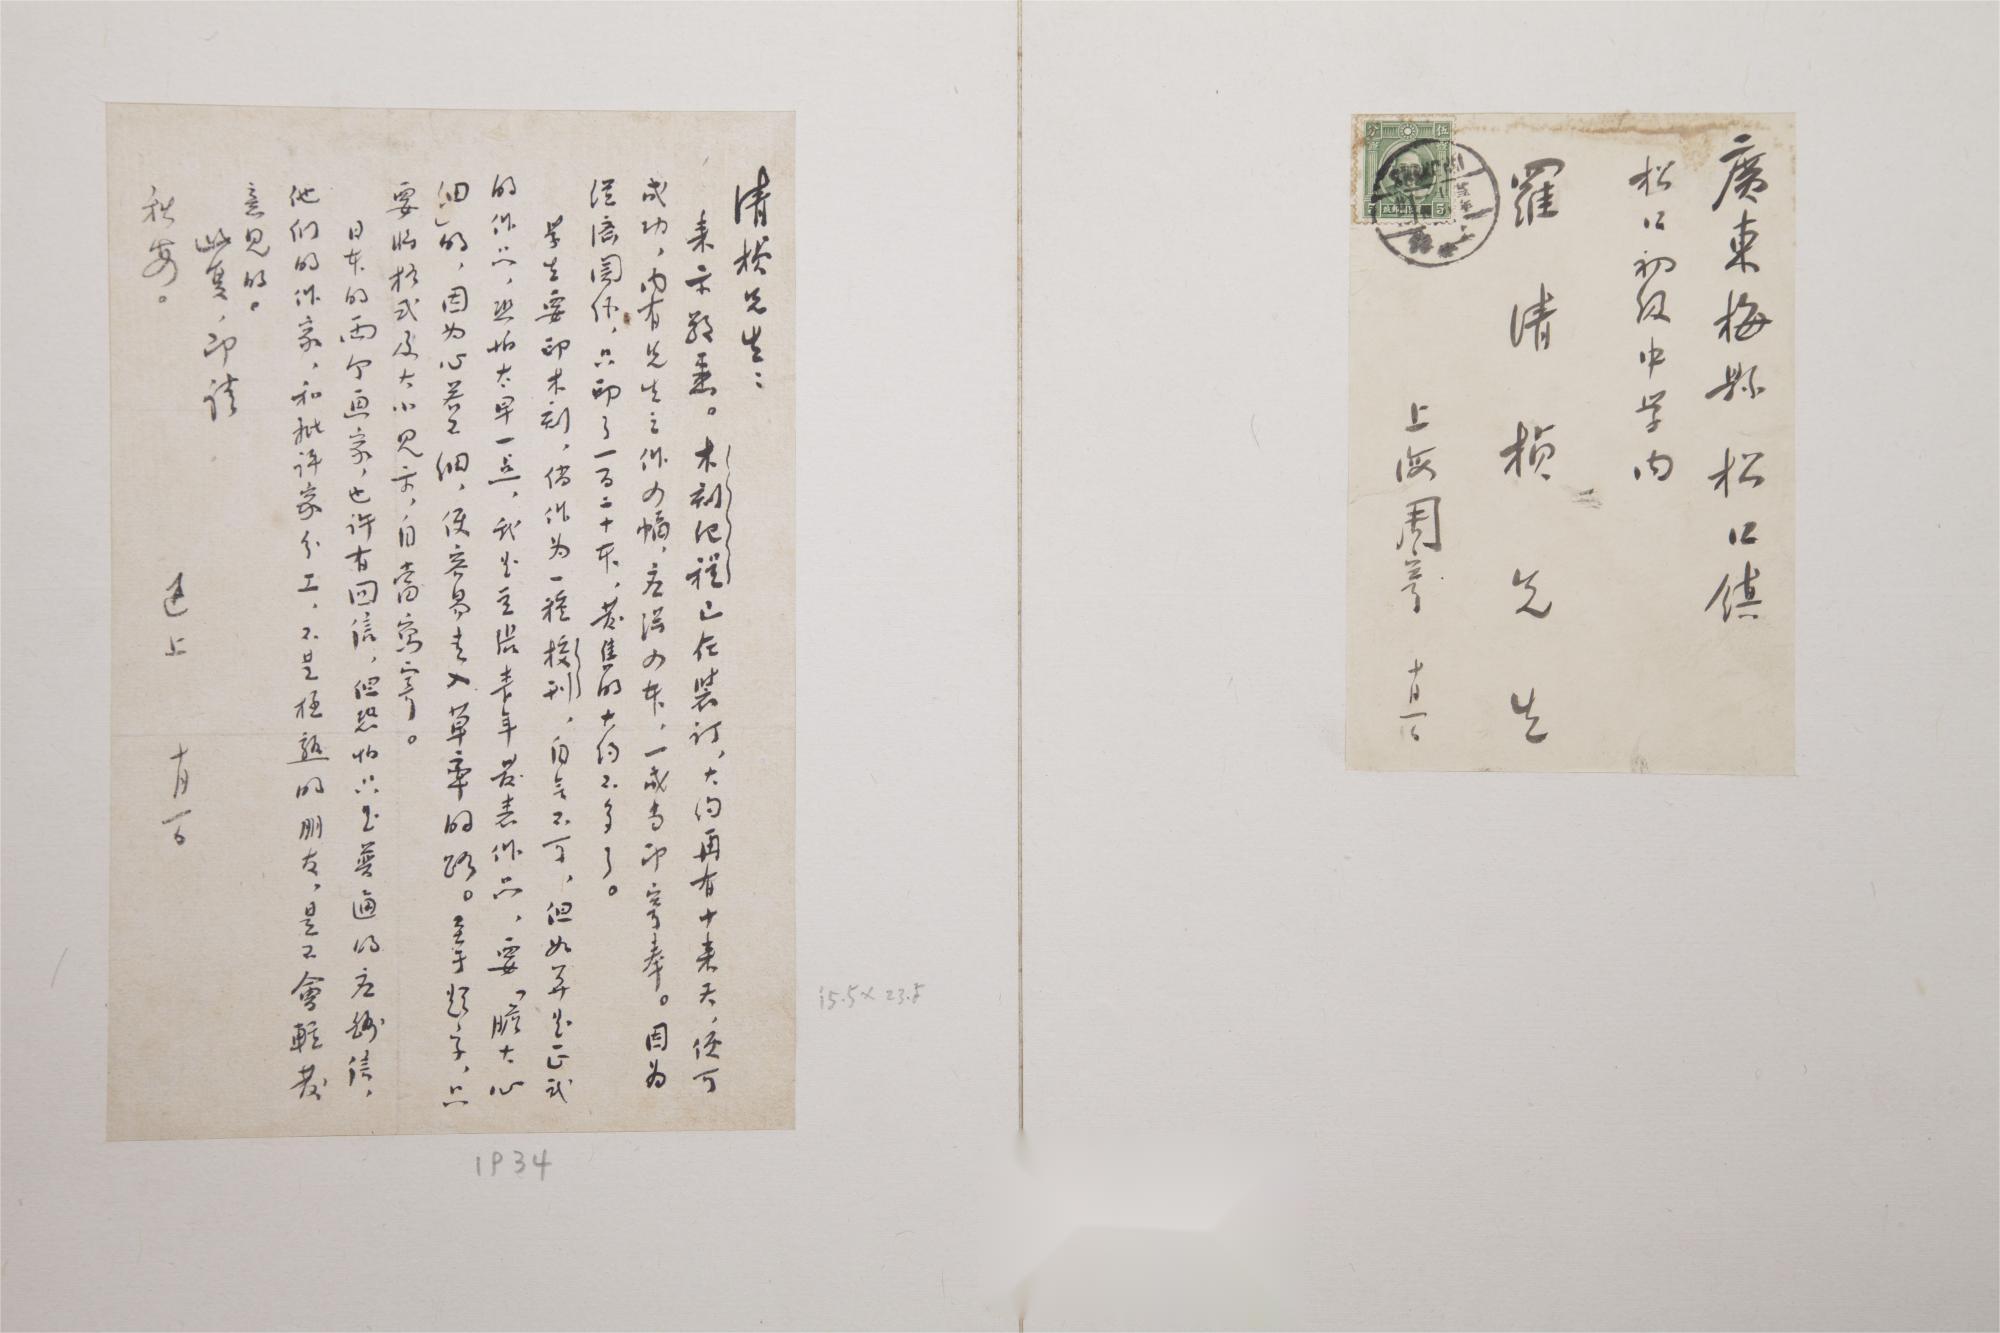 清楨先生：
来示敬悉。木刻纪程已在装订，大约再有十来天，便可
成功，内有先生之作四幅，应得四本，一成当即寄奉。因为
经济関係，只印了一百二十本，发售的大约不多了。
学生要印木刻，倘作为一种校刊，自无不可，但如算是正式
的作品，恐怕太早一点，我是主张青年发表作品，要「胆大心
细」的，因为心若不细，便容易走入草率的路。至于题字，只
要将格式及大小见示，自当写寄。
日本的两个画家，也许有回信，但恐怕只是普通的应酬信，
他们的作家，和批评家分工，不是极熟的朋友，是不會輕发
意见的。
此复，即请
秋安。
迅上 十月一日
1934
15.5×23.5
廣東梅縣松口鎮
松口初级中学内
羅清楨先生
上海周寄 十月一日
分 伍
5 5
SHANGHAI